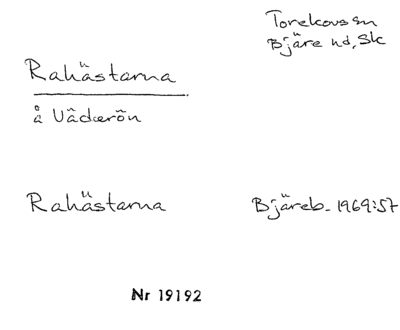 Torekovs sn
Bjäre hd, Sk
Rahästarna
å Väderön
Rahästarna
Bjäreb. 1969:57
Nr 19192